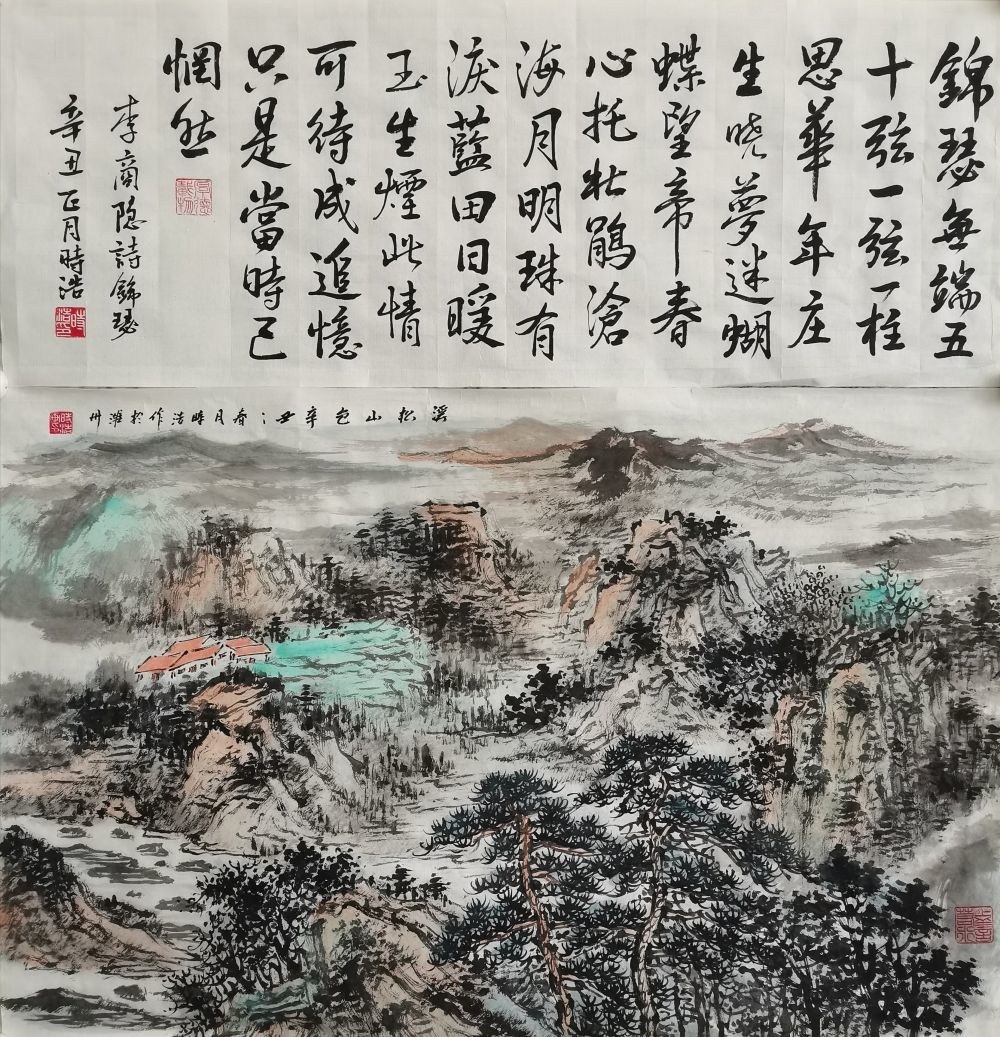 錦瑟無端五
十弦一弦一柱
思華年庄
生曉夢迷蝴
蝶望帝春
心托杜鹃滄
海月明珠有
淚藍田日暖
玉生煙此情
可待成追憶
只是當時已
惘然
李商隐詩錦瑟
辛丑正月時浩
時浩印
溪松山色辛丑春月時浩作於濰州